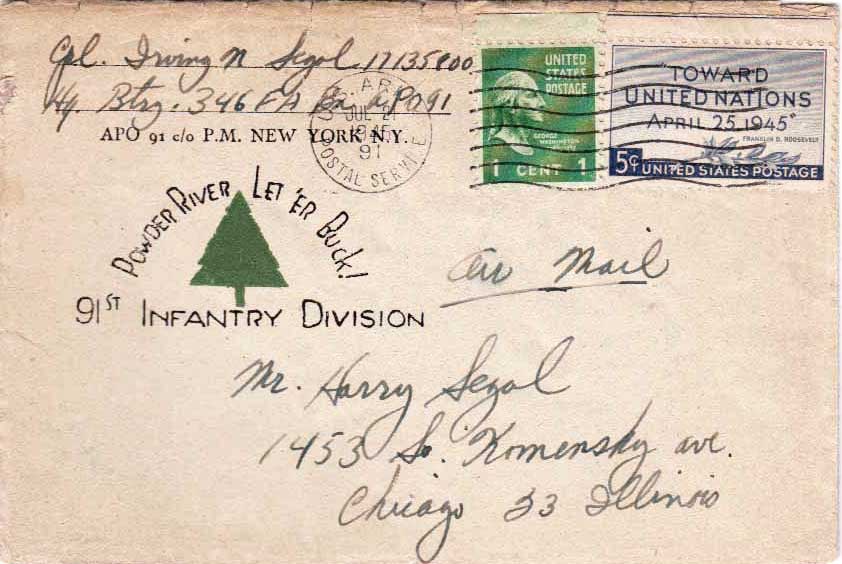 Cpl. Irving N Segal 17135800
Hq. Btry. 346 FA Bn APO 91
APO 91 c/o P.M. NEW YORK, N.Y.
U.S. ARMY
JUL 21
1945
91
POSTAL SERVICE
UNITED
STATES
POSTAGE
GEORGE
WASHINGTON
1 CENT 1
"TOWARD
UNITED NATIONS
APRIL 25, 1945"
FRANKLIN D. ROOSEVELT
5¢ UNITED STATES POSTAGE
POWDER RIVER LET 'ER BUCK!
91ST INFANTRY DIVISION
Air Mail
Mr. Harry Segal
1453 So. Komensky ave.
Chicago 23 Illinois